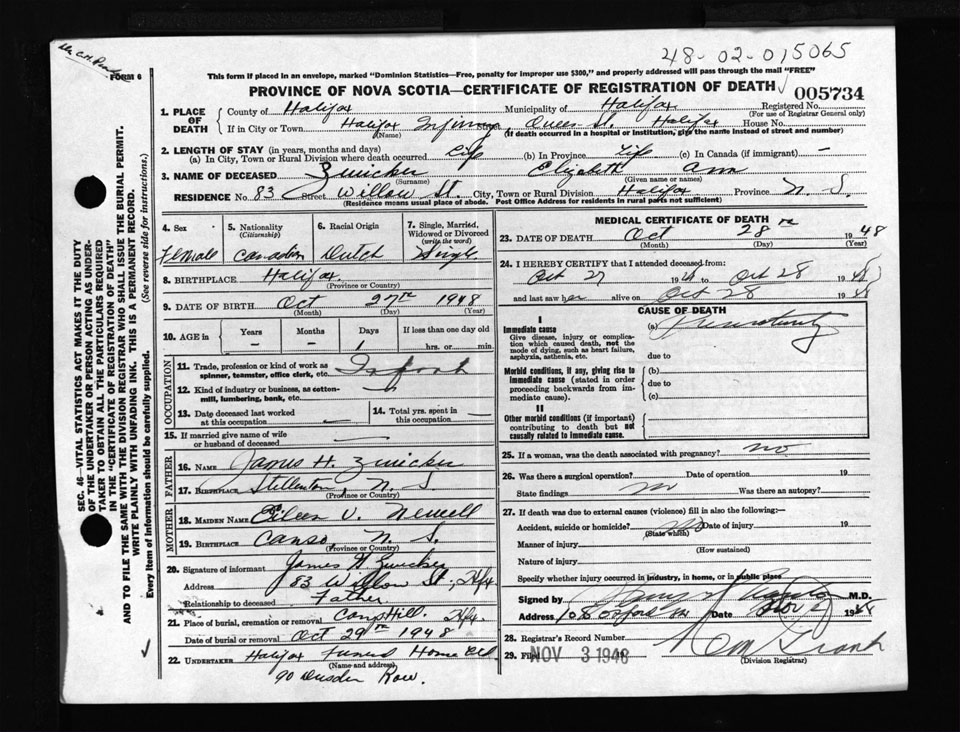 48-02-015065
FORM 6
This form if placed in an envelope, marked "Dominion Statistics—Free, penalty for improper use $300," and properly addressed will pass through the mail "FREE"
PROVINCE OF NOVA SCOTIA—CERTIFICATE OF REGISTRATION OF DEATH 005734
1. PLACE OF DEATH
County of Halifax Municipality of Halifax Registered No.
(For use of Registrar General only)
If in City or Town Halifax Infirmary, Queen St. Halifax House No.
(Name) (If death occurred in a hospital or institution, give the name instead of street and number)
2. LENGTH OF STAY (in years, months and days)
(a) In City, Town or Rural Division where death occurred Life (b) In Province Life (c) In Canada (if immigrant) —
3. NAME OF DECEASED Zwicker Elizabeth Ann
(Surname) (Given name or names)
RESIDENCE No. 83 Street Willow St. City, Town or Rural Division Halifax Province N. S.
(Residence means usual place of abode. Post Office Address for residents in rural parts not sufficient)
4. Sex Female
5. Nationality (Citizenship) Canadian
6. Racial Origin Dutch
7. Single, Married, Widowed or Divorced (write the word) Single
8. BIRTHPLACE Halifax
(Province or Country)
9. DATE OF BIRTH Oct 27th 1948
(Month) (Day) (Year)
10. AGE in Years Months Days If less than one day old
— — 1 hrs. or min.
OCCUPATION
11. Trade, profession or kind of work as spinner, teamster, office clerk, etc. Infant
12. Kind of industry or business, as cotton-mill, lumbering, bank, etc. —
13. Date deceased last worked at this occupation — 14. Total yrs. spent in this occupation —
15. If married give name of wife or husband of deceased —
FATHER
16. NAME James H. Zwicker
17. BIRTHPLACE Stellarton, N. S.
(Province or Country)
MOTHER
18. MAIDEN NAME Eileen V. Newell
19. BIRTHPLACE Canso, N. S.
(Province or Country)
20. Signature of informant James H. Zwicker
Address 83 Willow St., Hfx
Relationship to deceased Father
21. Place of burial, cremation or removal Camp Hill. Hfx.
Date of burial or removal Oct 29th 1948
22. UNDERTAKER Halifax Funeral Home Ltd
(Name and address)
90 Dresden Row.
MEDICAL CERTIFICATE OF DEATH
23. DATE OF DEATH Oct 28th 1948
(Month) (Day) (Year)
24. I HEREBY CERTIFY that I attended deceased from:
Oct 27 19 to Oct 28 1948
and last saw her alive on Oct 28 1948
CAUSE OF DEATH
I
Immediate cause (a) Prematurity
Give disease, injury or complication which caused death, not the mode of dying, such as heart failure, asphyxia, asthenia, etc.
due to
Morbid conditions, if any, giving rise to immediate cause (stated in order proceeding backwards from immediate cause).
(b)
due to
(c)
II
Other morbid conditions (if important) contributing to death but not causally related to immediate cause.
25. If a woman, was the death associated with pregnancy? no
26. Was there a surgical operation? Date of operation 19
State findings no Was there an autopsy?
27. If death was due to external causes (violence) fill in also the following:—
Accident, suicide or homicide? no Date of injury 19
(State which)
Manner of injury
(How sustained)
Nature of injury
Specify whether injury occurred in industry, in home, or in public place
Signed by M.D.
Address Oxford St Date Nov 2 1948
28. Registrar's Record Number
29. Filed NOV 3 1948
(Division Registrar)
SEC. 46—VITAL STATISTICS ACT MAKES IT THE DUTY OF THE UNDERTAKER OR PERSON ACTING AS UNDERTAKER TO OBTAIN ALL THE PARTICULARS REQUIRED IN THE "CERTIFICATE OF REGISTRATION OF DEATH"
AND TO FILE THE SAME WITH THE DIVISION REGISTRAR WHO SHALL ISSUE THE BURIAL PERMIT.
WRITE PLAINLY WITH UNFADING INK. THIS IS A PERMANENT RECORD.
Every item of information should be carefully supplied. (See reverse side for instructions.)